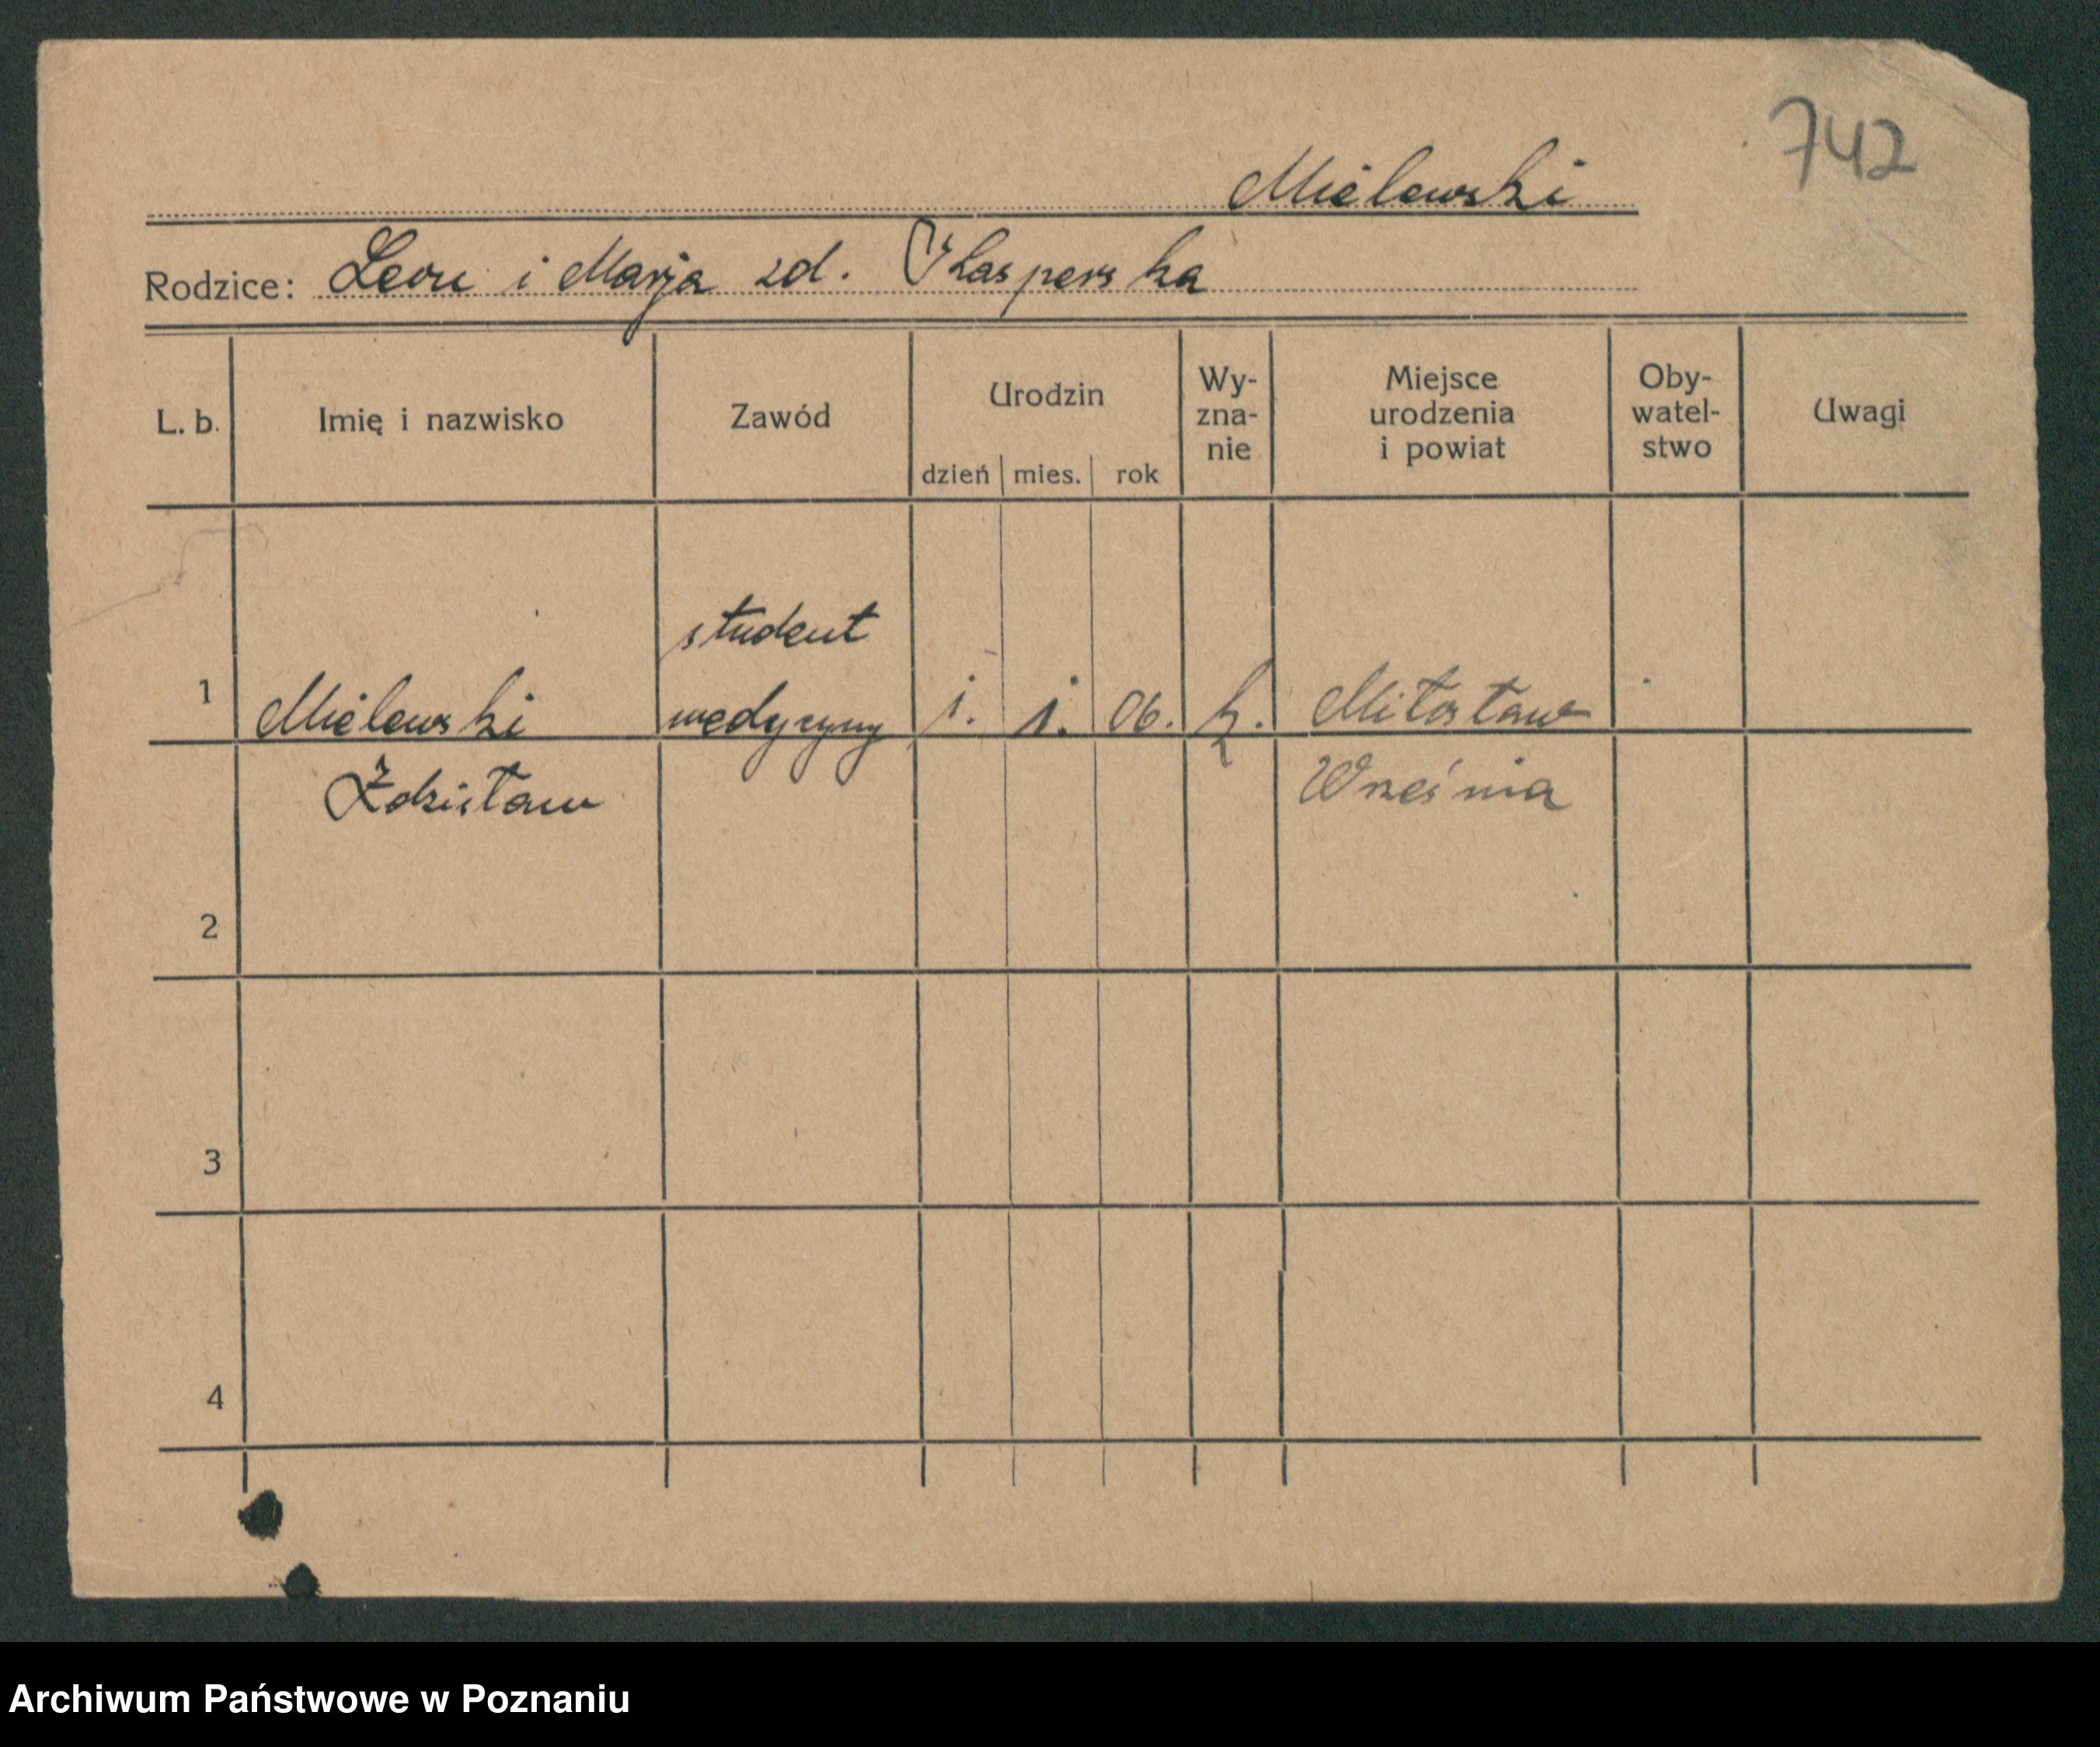 742
Mielewski
Rodzice: Leon i Marja zd. Kasperska
L. b. Imię i nazwisko Zawód Urodzin dzień mies. rok Wy-zna-nie Miejsce urodzenia i powiat Oby-watel-stwo Uwagi
student
1 Mielewski medycyny 1. 1. 06. k. Miłosław
Zdzisław Września
2
3
4
Archiwum Państwowe w Poznaniu